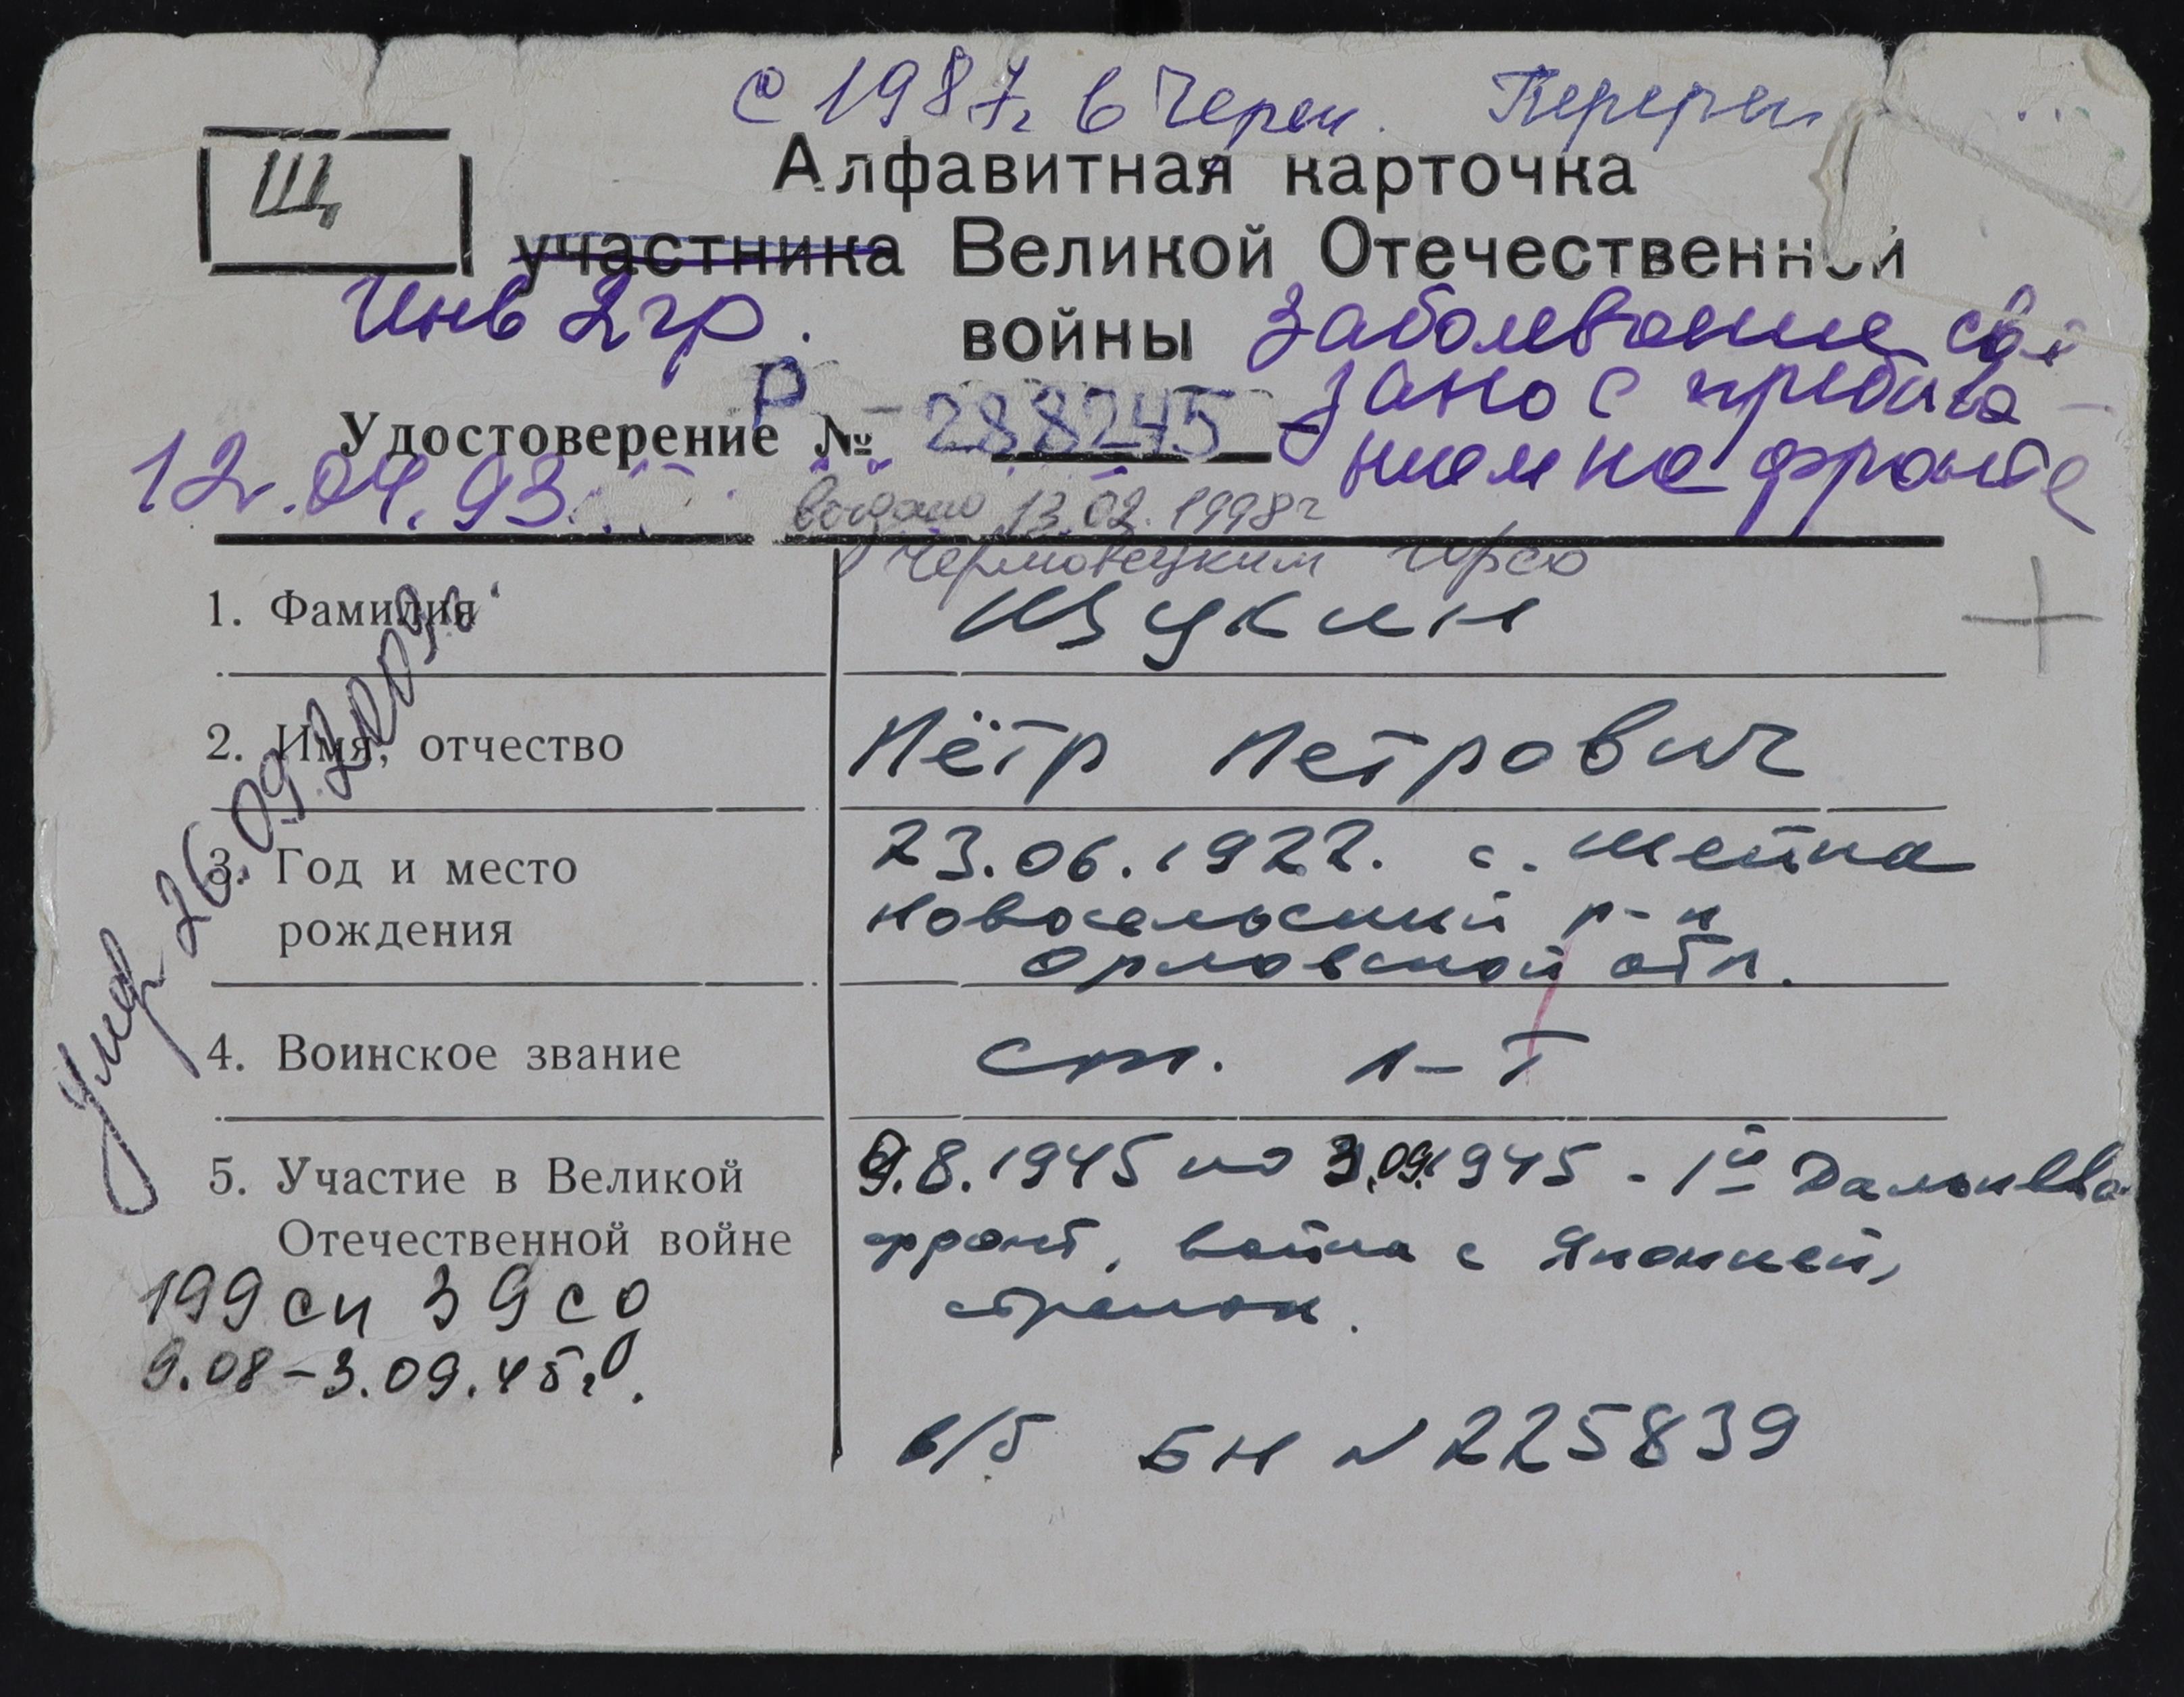 с 1987г. в Череп. Перерег
Щ
Алфавитная карточка
участника Великой Отечественной
Инв 2 гр. войны заболевание свя
зано с пребыва-
нием на фронте
Удостоверение Р № 288245
12.04.93. выдано 13.02.1998г
Череповецким горсо
1. Фамилия Щукин
2. Имя, отчество Пётр Петрович
3. Год и место 23.06.1922. с.
рождения Новосельский р-н
Орловской обл.
4. Воинское звание ст. л-т
5. Участие в Великой 9.8.1945 по 3.09.1945 - 1й Дальнево
Отечественной войне фронт, война с Японией,
стрелок.
199 сп 39 сд
9.08-3.09.45г.
в/б БН N 225839
Умер 26.09.2009г.